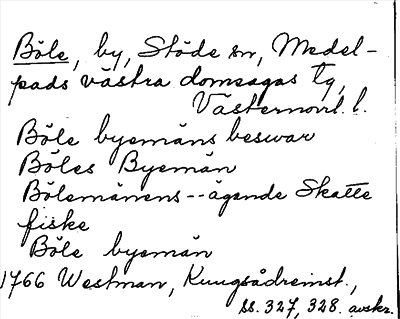 Böle, by, Stöde sn, Medel-
pads västra domsagas tg,
Västernorrl. l.
Böle byemäns beswar
Böles Byemän
Bölemänens -- ägande Skatte
fiske
Böle byemän
1766 Westman, Kungsådreinst.,
ss. 327, 328. avskr.